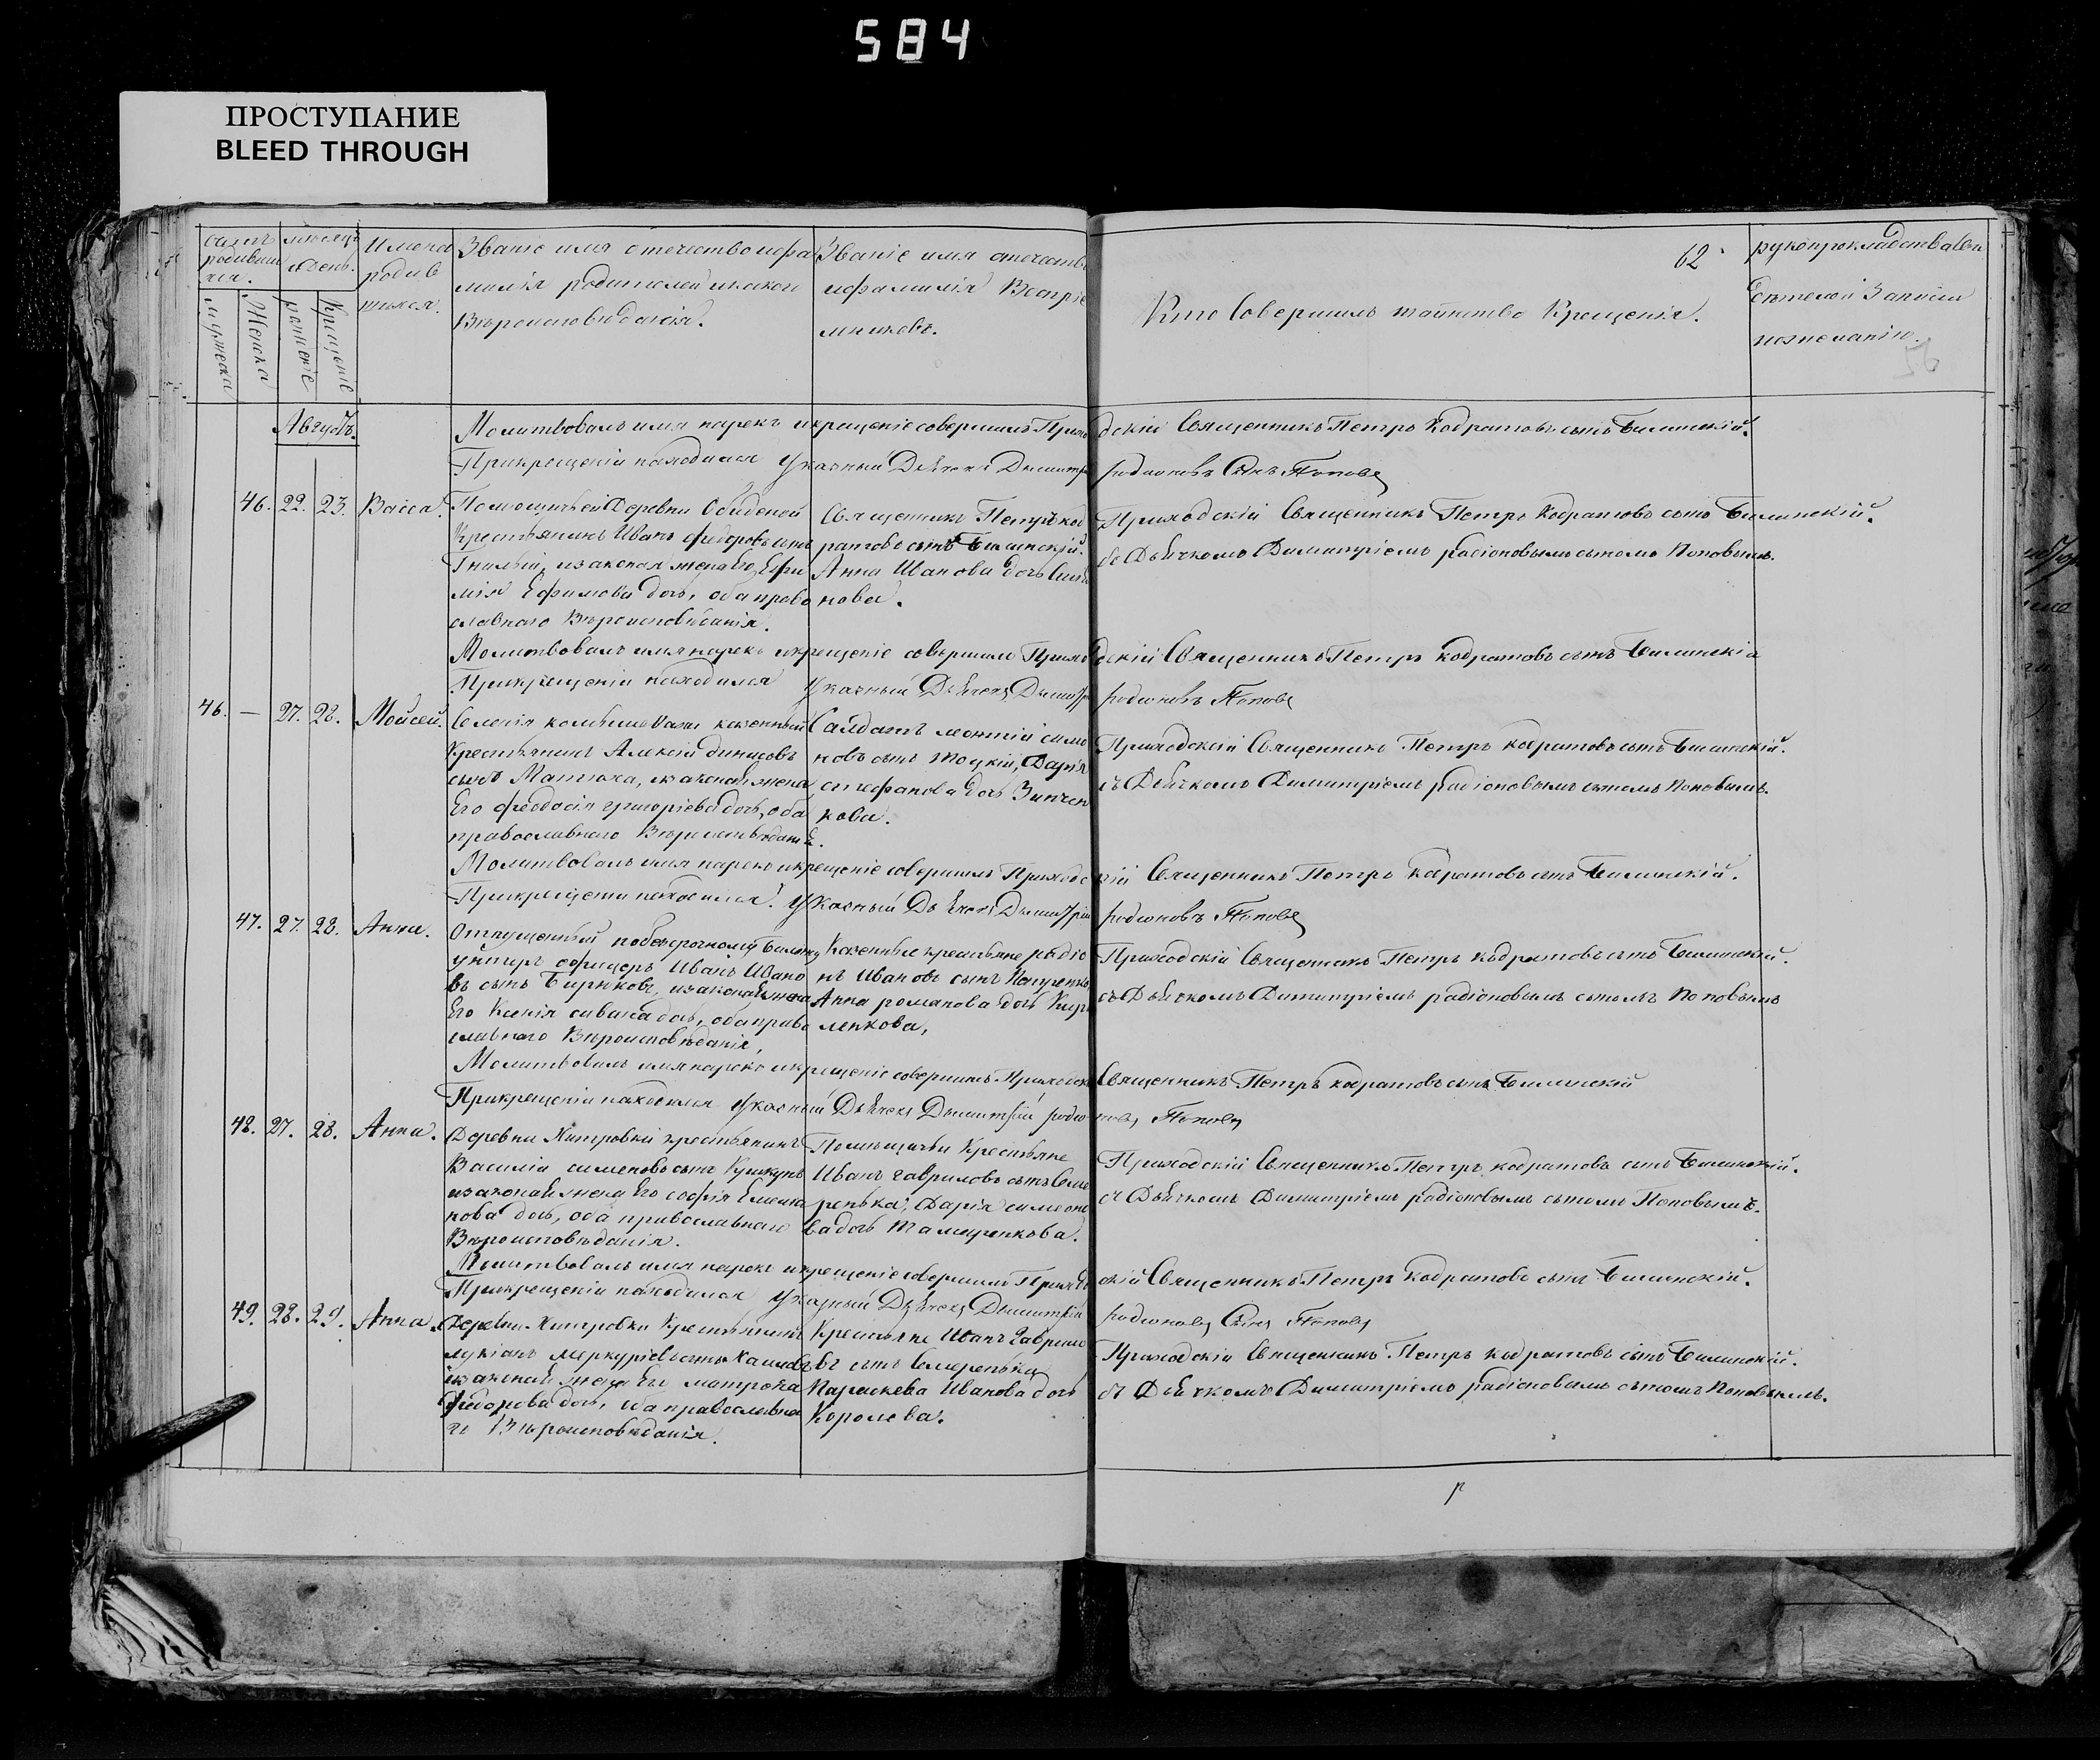 584
ПРОСТУПАНИЕ
BLEED THROUGH
62
Имена
родив
шихся.
мѣсяцъ
и день.
мужеска
Женска
рожденіе
Крещеніе
Званіе имя отечество и фа
милія родителей и какого
Вѣроисповѣданія.
Званіе имя отечество
и фамилія Воспріе
мниковъ.
Кто Совершилъ таинство Крещенія.
рукоприкладство
Свидѣтелей Записи
по желанію.
Августъ.
Молитвовалъ имя нарекъ и крещеніе совершилъ Приходскій Священникъ Петръ Кодратовъ сынъ Билинскій.
При крещеніи находился Указный Дьячекъ Димитрій Родионовъ Сынъ Поповъ
46. 22. 23. Васса.
Помощичьей Деревни Обиденой
Крестьянинъ Иванъ Федоровъ сынъ
Гнилый, и законая жена Его Ефи
мія Ефимова дочь, оба право
славнаго Вѣроисповѣданія.
Священникъ Петръ код
ратовъ сынъ Билинскій.
Анна Иванова дочь
нова.
Приходскій Священникъ Петръ Кодратовъ сынъ Билинскій.
съ Дьячкомъ Димитріемъ радіоновымъ сыномъ Поповымъ.
Молитвовалъ имя нарекъ и крещеніе совершилъ Приходскій Священникъ Петръ Кодратовъ сынъ Билинскій
При крещеніи находился Указный Дьячекъ Димитрій Родионовъ Поповъ
46. — 27. 28. Мойсей.
Селенія казенный
Крестьянинъ Алексій динисовъ
сынъ Матюха, и законая жена
Его феодосія григоріева дочь, оба
православнаго Вѣроисповѣданіе.
Салдатъ леонтій симо
новъ сынъ Тоцкій, Дарія
стефанова дочь Зинчен
кова.
Приходскій Священникъ Петръ кодратовъ сынъ Билинскій.
съ Дьячкомъ Димитріемъ радіоновымъ сыномъ Поповымъ.
Молитвовалъ имя нарекъ и крещеніе совершилъ Приходскій Священникъ Петръ Кодратовъ сынъ Билинскій.
При крещеніи находился Указный Дьячекъ Димитрій Родионовъ Поповъ
47. 27. 28. Анна.
Отпущенный по безсрочному билету
унтеръ офицеръ Иванъ Ивано
въ сынъ Бирюковъ, и законая жена
Его Ксенія савина дочь, оба право
славнаго Вѣроисповѣданія,
Казенные крестьяне радіо
нъ Ивановъ сынъ
Анна романова дочь Кири
ленкова,
Приходскій Священникъ Петръ кодратовъ сынъ Билинскій.
съ Дьячкомъ Димитріемъ радіоновымъ сыномъ Поповымъ
Молитвовалъ имя нарекъ и крещеніе совершилъ Приходскій Священникъ Петръ кодратовъ сынъ Билинскій
При крещеніи находился Указный Дьячекъ Димитрій Родионовъ Поповъ
48. 27. 28. Анна.
Деревни Хитровки крестьянинъ
Василій сименовъ сынъ
и законая жена Его софія Емелья
нова дочь, оба православнаго
Вѣроисповѣданія.
Помѣщичьи Крестьяне
Иванъ гавриловъ сынъ Сме
ренька, Дарія симеоно
ва дочь
Приходскій Священникъ Петръ кодратовъ сынъ Билинскій.
съ Дьячкомъ Димитріемъ радіоновымъ сыномъ Поповымъ.
Молитвовалъ имя нарекъ и крещеніе совершилъ Приходскій Священникъ Петръ Кодратовъ сынъ Билинскій.
При крещеніи находился Указный Дьячекъ Димитрій Родионовъ Сынъ Поповъ
49. 28. 29. Анна.
Деревни Хитровки Крестьянинъ
лукіанъ меркуріевъ сынъ
и законая жена Его матрона
федорова дочь, оба православна
го Вѣроисповѣданія.
Крестьяне Иванъ Гаврило
въ сынъ Смеренька
Параскева Иванова дочь
Королева.
Приходскій Священникъ Петръ кодратовъ сынъ Билинскій.
съ Дьячкомъ Димитріемъ радіоновымъ сыномъ Поповымъ.